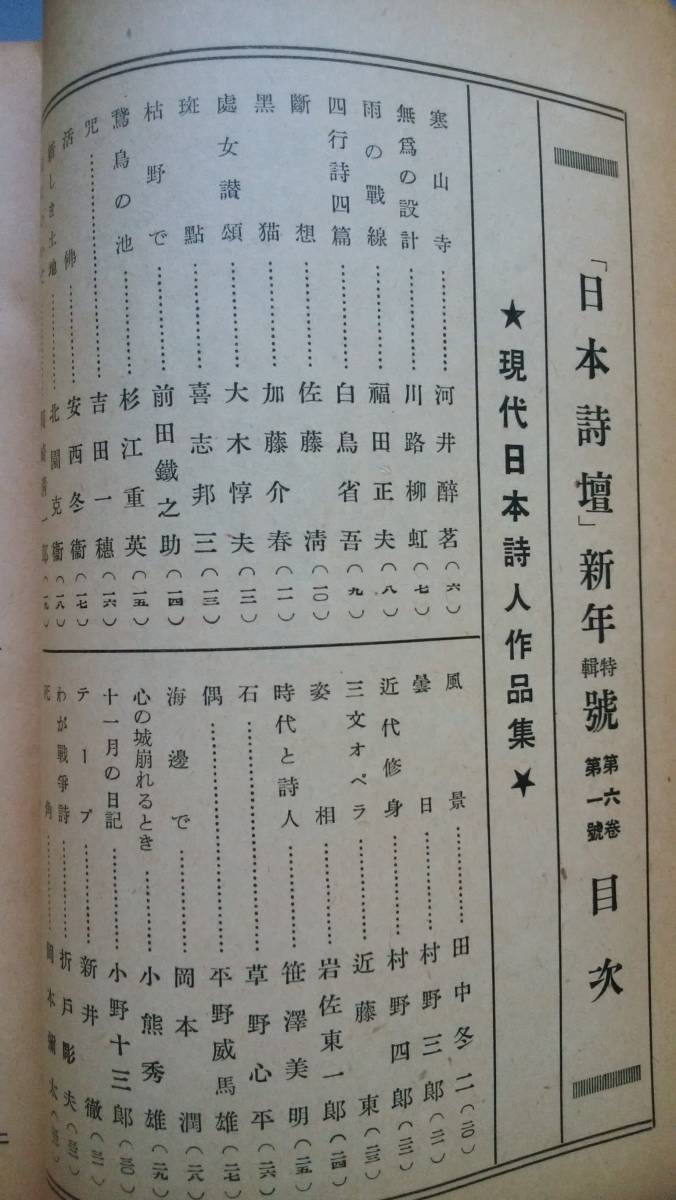 「日本詩壇」新年特輯號 第六卷第一號 目次
★現代日本詩人作品集★
寒山寺…………河井醉茗(六)
無爲の設計…………川路柳虹(七)
雨の戰線…………福田正夫(八)
四行詩四篇…………白鳥省吾(九)
斷想…………佐藤淸(一〇)
黑猫…………加藤介春(一一)
處女讃頌…………大木惇夫(一二)
斑點…………喜志邦三(一三)
枯野で…………前田鐵之助(一四)
鵞鳥の池…………杉江重英(一五)
咒…………吉田一穗(一六)
活佛…………安西冬衞(一七)
新しき土地…………北園克衞(一八)
風景…………田中冬二(二〇)
曇日…………村野三郎(二一)
近代修身…………村野四郎(二二)
三文オペラ…………近藤東(二三)
姿相…………岩佐東一郎(二四)
時代と詩人…………笹澤美明(二五)
石…………草野心平(二六)
偶…………平野威馬雄(二七)
海邊で…………岡本潤(二八)
心の城崩れるとき…………小熊秀雄(二九)
十一月の日記…………小野十三郎(三〇)
テープ…………新井徹(三一)
わが戰爭詩…………折戸彫夫(三二)
死角…………岡本彌太